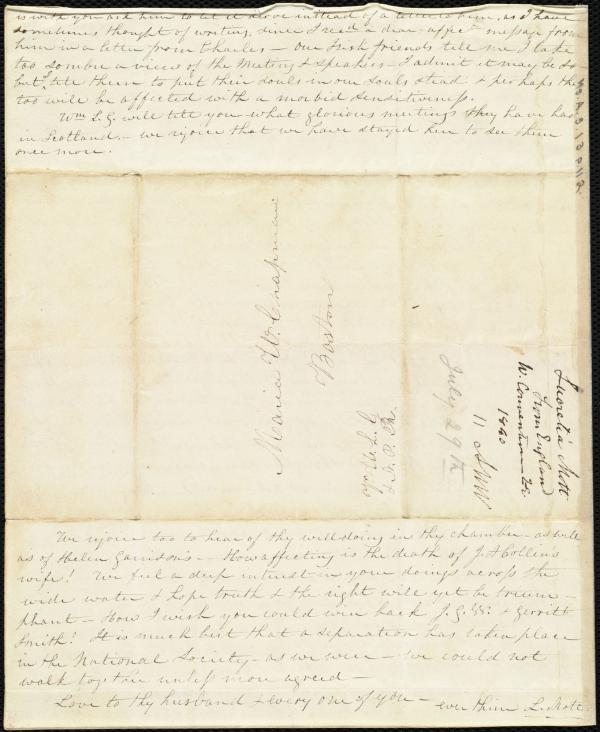 is with you ask him to let it atone instead of a letter to him, as I have
sometimes thought of writing, since I rec'd a dear affec.t message from
him in a letter from Charles — our Irish friends tell me I take
too sombre a view of the Meeting & speakers — I admit it may be so
but I tell them to put their souls in our souls stead & perhaps they
too will be affected with a morbid sensitiveness.
Wm. L. G. will tell you what glorious meetings they have had
in Scotland — we rejoice that we have stayed here to see them
once more.
Maria W. Chapman
Boston
W. L. G.
July 29th
11 AMW
Lucretia Mott
from England
W. Convention &c.
1840
We rejoice too to hear of thy well doing in thy chamber — as well
as of Helen Garrison's — How affecting is the death of J. A Collins
wife! We feel a deep interest in your doings across the
wide water & hope truth & the right will yet be trium-
phant — How I wish you could win back J. G. W. & Gerritt
Smith! It is much best that a separation has taken place
in the National Society — as we were — we could not
walk together unless more agreed —
Love to thy husband & every one of you — ever thine L. Mott